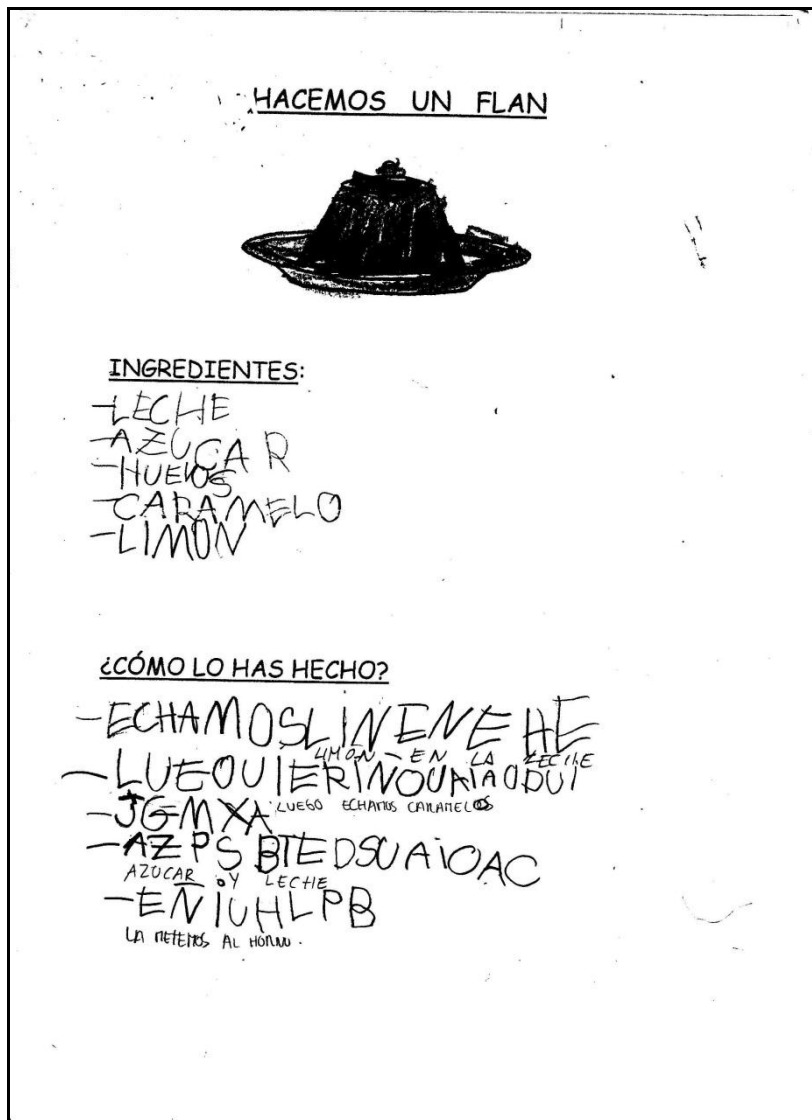 HACEMOS UN FLAN
INGREDIENTES:
-LECHE
-AZUCAR
-HUEVOS
-CARAMELO
-LIMON
¿CÓMO LO HAS HECHO?
-ECHAMOSLINENEHE
LIMON EN LA LECHE
-LUEOUIERINOUAIAODUI
LUEGO ECHAMOS CARAMELOS
-JGMXA
-AZPSBTEDSUAIOAC
AZUCAR Y LECHE
-EÑIUHLPB
LA METEMOS AL HORNO.